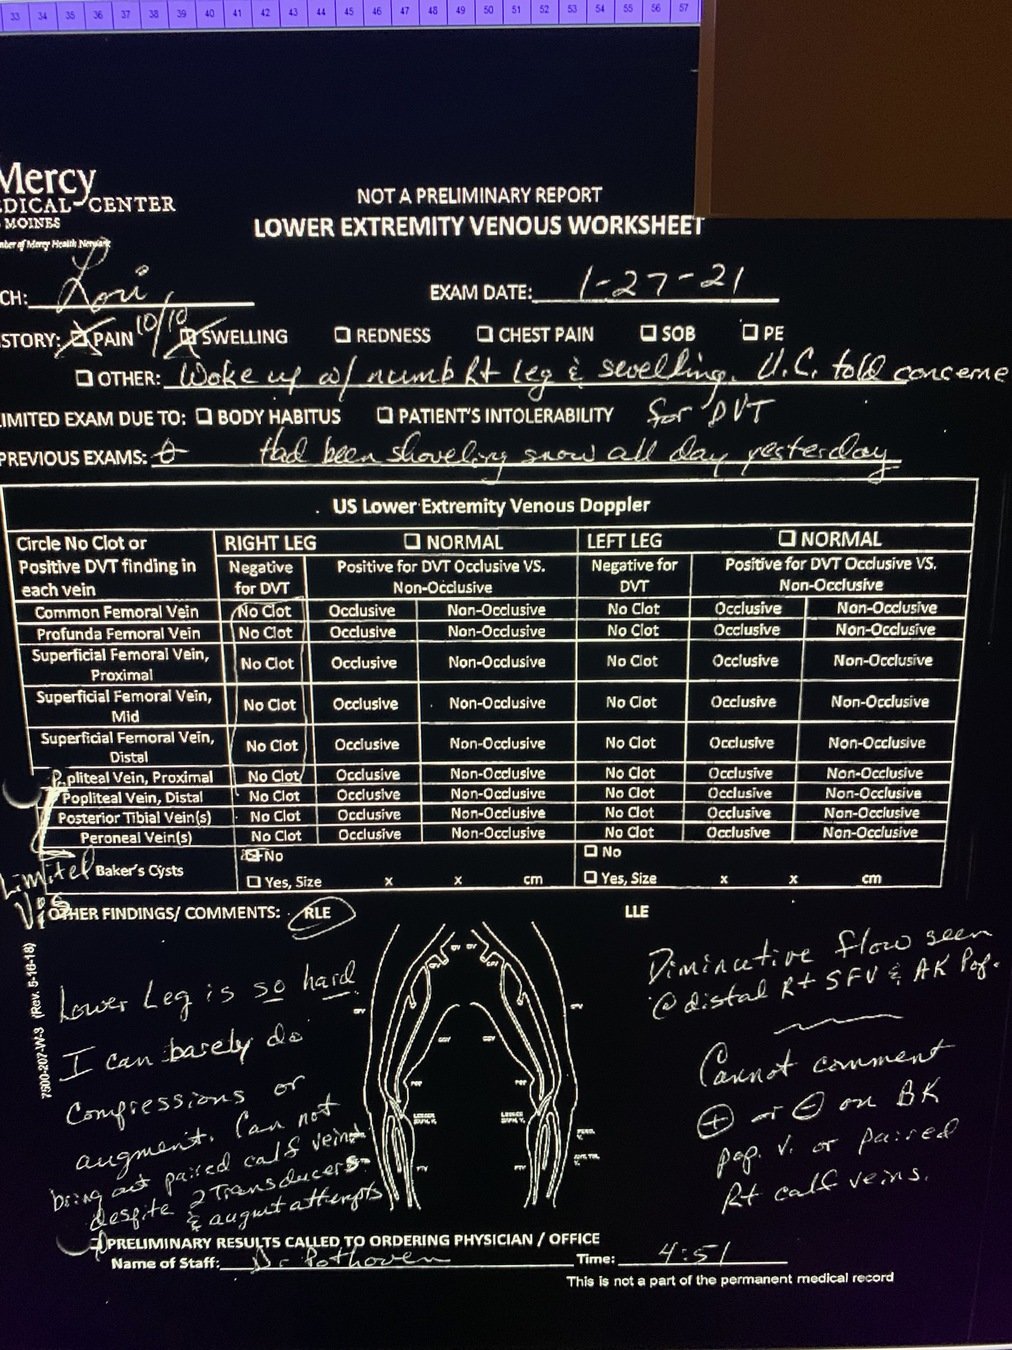 33 34 35 36 37 38 39 40 41 42 43 44 45 46 47 48 49 50 51 52 53 54 55 56 57
Mercy
DICAL CENTER
MOINES
mber of Mercy Health Network
NOT A PRELIMINARY REPORT
LOWER EXTREMITY VENOUS WORKSHEET
CH: Lori
EXAM DATE: 1-27-21
STORY: PAIN 10/10 SWELLING REDNESS CHEST PAIN SOB PE
OTHER: Woke up w/ numb Rt leg & swelling. U.C. told concerne
IMITED EXAM DUE TO: BODY HABITUS PATIENT'S INTOLERABILITY for DVT
PREVIOUS EXAMS: Had been shoveling snow all day yesterday
US Lower Extremity Venous Doppler
Circle No Clot or Positive DVT finding in each vein
RIGHT LEG NORMAL LEFT LEG NORMAL
Negative for DVT Positive for DVT Occlusive VS. Non-Occlusive Negative for DVT Positive for DVT Occlusive VS. Non-Occlusive
Common Femoral Vein No Clot Occlusive Non-Occlusive No Clot Occlusive Non-Occlusive
Profunda Femoral Vein No Clot Occlusive Non-Occlusive No Clot Occlusive Non-Occlusive
Superficial Femoral Vein, Proximal No Clot Occlusive Non-Occlusive No Clot Occlusive Non-Occlusive
Superficial Femoral Vein, Mid No Clot Occlusive Non-Occlusive No Clot Occlusive Non-Occlusive
Superficial Femoral Vein, Distal No Clot Occlusive Non-Occlusive No Clot Occlusive Non-Occlusive
Popliteal Vein, Proximal No Clot Occlusive Non-Occlusive No Clot Occlusive Non-Occlusive
Popliteal Vein, Distal No Clot Occlusive Non-Occlusive No Clot Occlusive Non-Occlusive
Posterior Tibial Vein(s) No Clot Occlusive Non-Occlusive No Clot Occlusive Non-Occlusive
Peroneal Vein(s) No Clot Occlusive Non-Occlusive No Clot Occlusive Non-Occlusive
Limited
Baker's Cysts No No
Yes, Size x x cm Yes, Size x x cm
OTHER FINDINGS/ COMMENTS: RLE LLE
7500-207-W-3 (Rev. 5-16-18)
Lower Leg is so hard
I can barely do
compressions or
augment. Can not
bring out paired calf veins
despite 2 Transducers
& augment attempts
Diminutive flow seen
@ distal Rt SFV & AK Pop.
Cannot comment
+ or - on BK
pop. v. or paired
Rt calf veins.
PRELIMINARY RESULTS CALLED TO ORDERING PHYSICIAN / OFFICE
Name of Staff: Dr Pothoven Time: 4:51
This is not a part of the permanent medical record